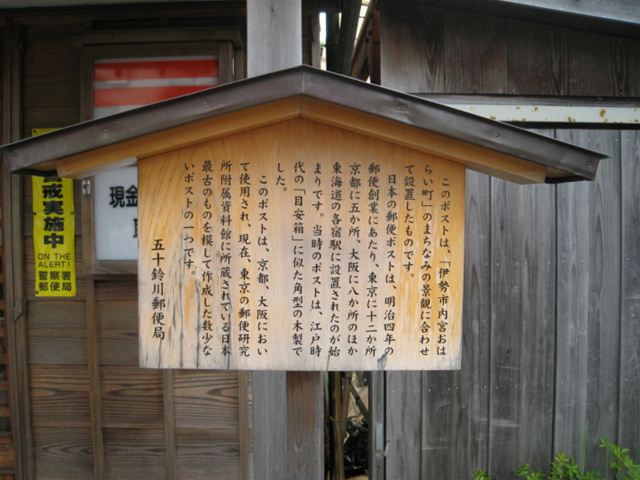 このポストは、「伊勢市内宮おは
らい町」のまちなみの景観に合わせ
て設置したものです。
日本の郵便ポストは、明治四年の
郵便創業にあたり、東京に十二か所
京都に五か所、大阪に八か所のほか
東海道の各宿駅に設置されたのが始
まりです。当時のポストは、江戸時
代の「目安箱」に似た角型の木製で
した。
このポストは、京都、大阪におい
て使用され、現在、東京の郵便研究
所附属資料館に所蔵されている日本
最古のものを模して作成した数少な
いポストの一つです。
五十鈴川郵便局
戒実施中
ON THE
ALERT!
警察署
郵便局
現金